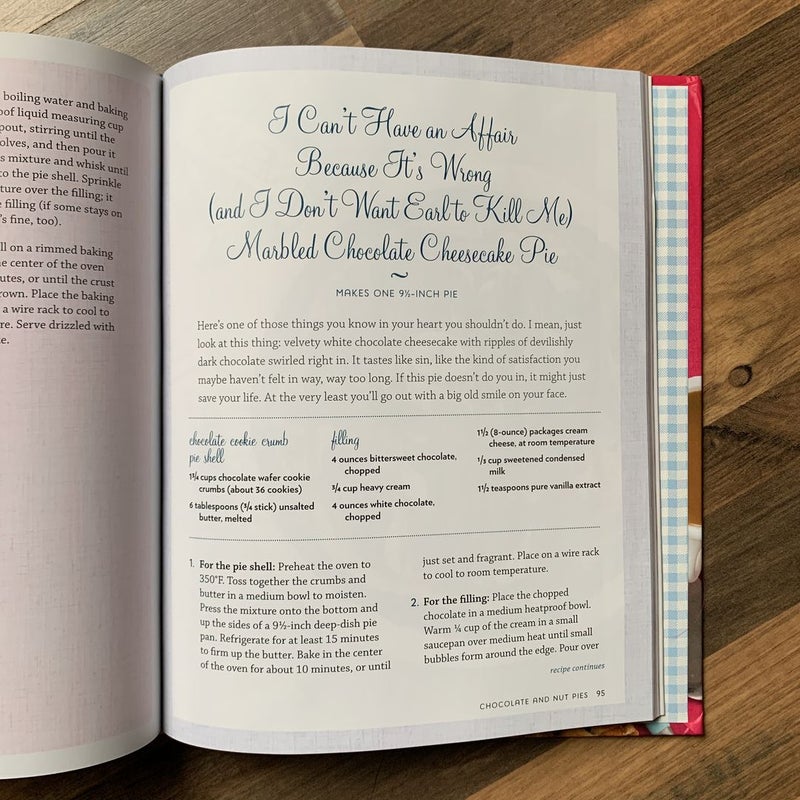 boiling water and baking
of liquid measuring cup
pout, stirring until the
olves, and then pour it
s mixture and whisk until
to the pie shell. Sprinkle
ture over the filling; it
filling (if some stays on
's fine, too).
ll on a rimmed baking
e center of the oven
utes, or until the crust
rown. Place the baking
a wire rack to cool to
re. Serve drizzled with
e.
I Can't Have an Affair
Because It's Wrong
(and I Don't Want Earl to Kill Me)
Marbled Chocolate Cheesecake Pie
~
MAKES ONE 9½-INCH PIE
Here's one of those things you know in your heart you shouldn't do. I mean, just
look at this thing: velvety white chocolate cheesecake with ripples of devilishly
dark chocolate swirled right in. It tastes like sin, like the kind of satisfaction you
maybe haven't felt in way, way too long. If this pie doesn't do you in, it might just
save your life. At the very least you'll go out with a big old smile on your face.
chocolate cookie crumb
pie shell
1¾ cups chocolate wafer cookie
crumbs (about 36 cookies)
6 tablespoons (¾ stick) unsalted
butter, melted
filling
4 ounces bittersweet chocolate,
chopped
¾ cup heavy cream
4 ounces white chocolate,
chopped
1½ (8-ounce) packages cream
cheese, at room temperature
⅓ cup sweetened condensed
milk
1½ teaspoons pure vanilla extract
1. For the pie shell: Preheat the oven to
350°F. Toss together the crumbs and
butter in a medium bowl to moisten.
Press the mixture onto the bottom and
up the sides of a 9½-inch deep-dish pie
pan. Refrigerate for at least 15 minutes
to firm up the butter. Bake in the center
of the oven for about 10 minutes, or until
just set and fragrant. Place on a wire rack
to cool to room temperature.
2. For the filling: Place the chopped
chocolate in a medium heatproof bowl.
Warm ¼ cup of the cream in a small
saucepan over medium heat until small
bubbles form around the edge. Pour over
recipe continues
CHOCOLATE AND NUT PIES 95